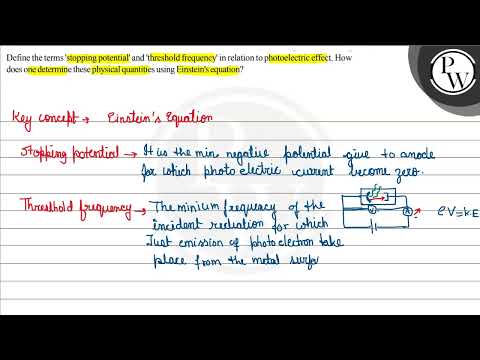 Define the terms 'stopping potential' and 'threshold frequency' in relation to photoelectric effect. How
does one determine these physical quantities using Einstein's equation?
PW
Key concept → Einstein's Equation
Stopping potential → It is the min negative potential give to anode
for which photo electric current become zero.
Threshold frequency → The minium frequency of the
incident rediation for which
Just emission of photoelectron take
place from the metal surfa
eV=K.E